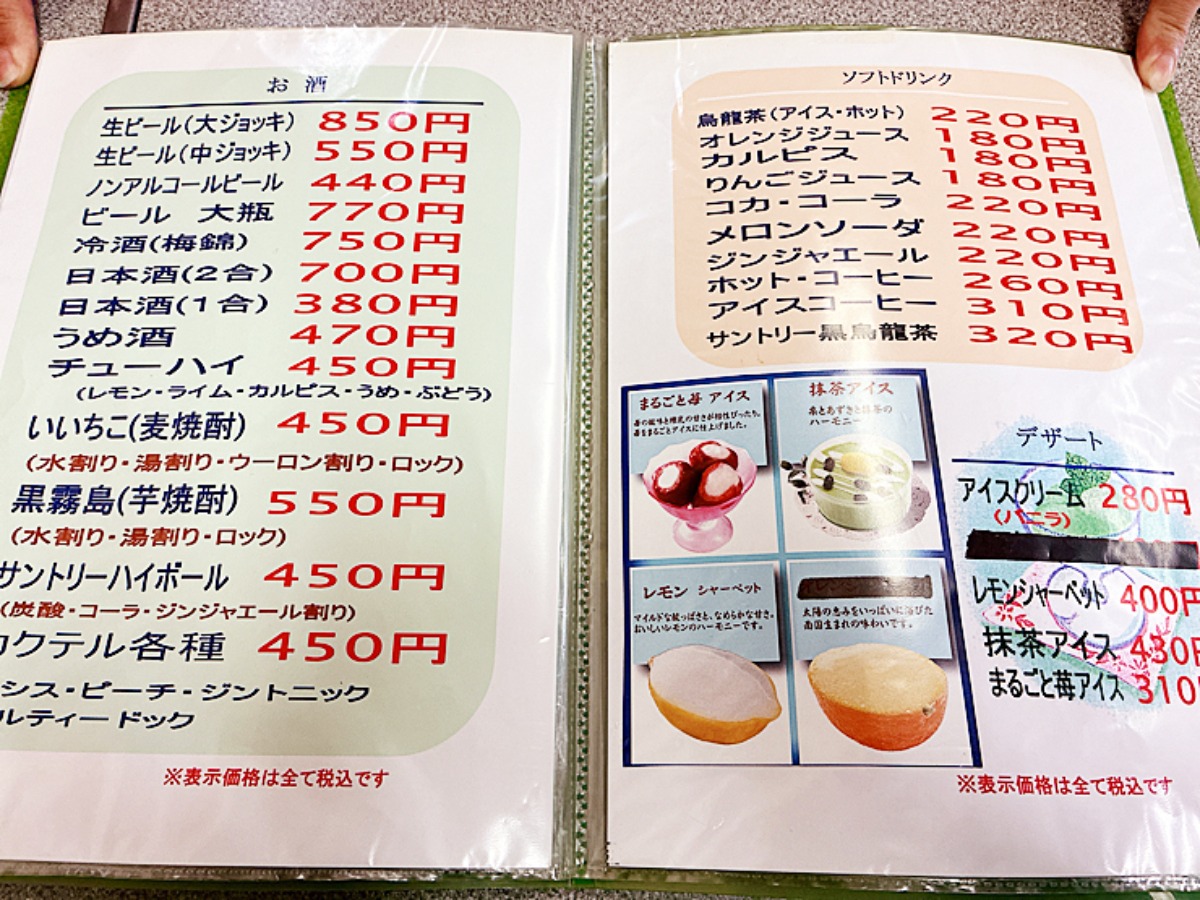 お酒
生ビール(大ジョッキ) 850円
生ビール(中ジョッキ) 550円
ノンアルコールビール 440円
ビール 大瓶 770円
冷酒(梅錦) 750円
日本酒(2合) 700円
日本酒(1合) 380円
うめ酒 470円
チューハイ 450円
(レモン・ライム・カルピス・うめ・ぶどう)
いいちこ(麦焼酎) 450円
(水割り・湯割り・ウーロン割り・ロック)
黒霧島(芋焼酎) 550円
(水割り・湯割り・ロック)
サントリーハイボール 450円
(炭酸・コーラ・ジンジャエール割り)
カクテル各種 450円
シス・ピーチ・ジントニック
ルティードック
※表示価格は全て税込です
ソフトドリンク
烏龍茶(アイス・ホット) 220円
オレンジジュース 180円
カルピス 180円
りんごジュース 180円
コカ・コーラ 220円
メロンソーダ 220円
ジンジャエール 220円
ホット・コーヒー 260円
アイスコーヒー 310円
サントリー黒烏龍茶 320円
まるごと苺 アイス
苺の酸味と練乳の甘さが相性ぴったり。
苺をまるごとアイスに仕上げました。
抹茶アイス
栗とあずきと抹茶の
ハーモニー
レモン シャーベット
マイルドな酸っぱさと、なめらかな甘さ。
おいしいレモンのハーモニーです。
太陽の恵みをいっぱいに浴びた
南国生まれの味わいです。
デザート
アイスクリーム 280円
(バニラ)
レモンシャーベット 400円
抹茶アイス 430円
まるごと苺アイス 310
※表示価格は全て税込です